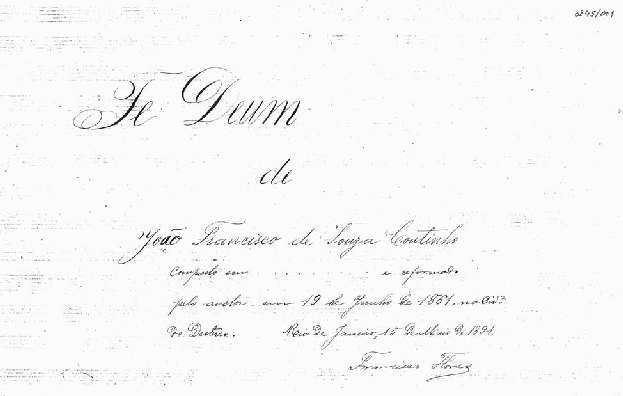 Te Deum
de
João Francisco de Souza Coutinho
Composto em . . . . . . . e reformado
pelo auctor em 19 de Junho de 1881. na Cid.e
Rio de Janeiro, 15 de de 1891.
Francisco Flores